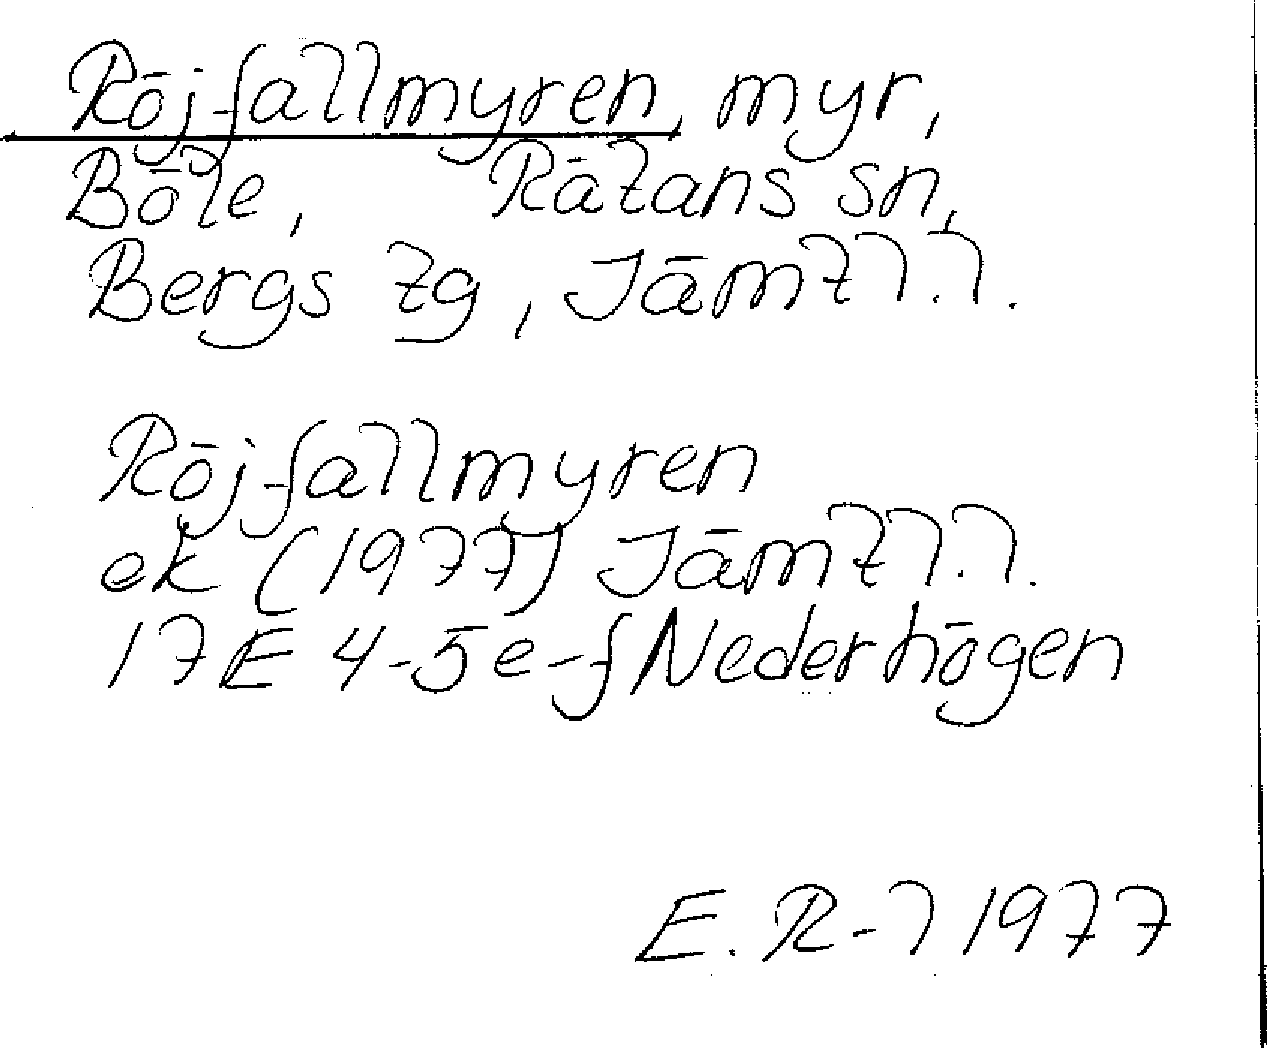 Röjfallmyren, myr,
Böle, Rätans sn,
Bergs tg, Jämtl.l.
Röjfallmyren
ek (1977) Jämtl.l.
17E 4-5e-f Nederhögen
E.R-l 1977